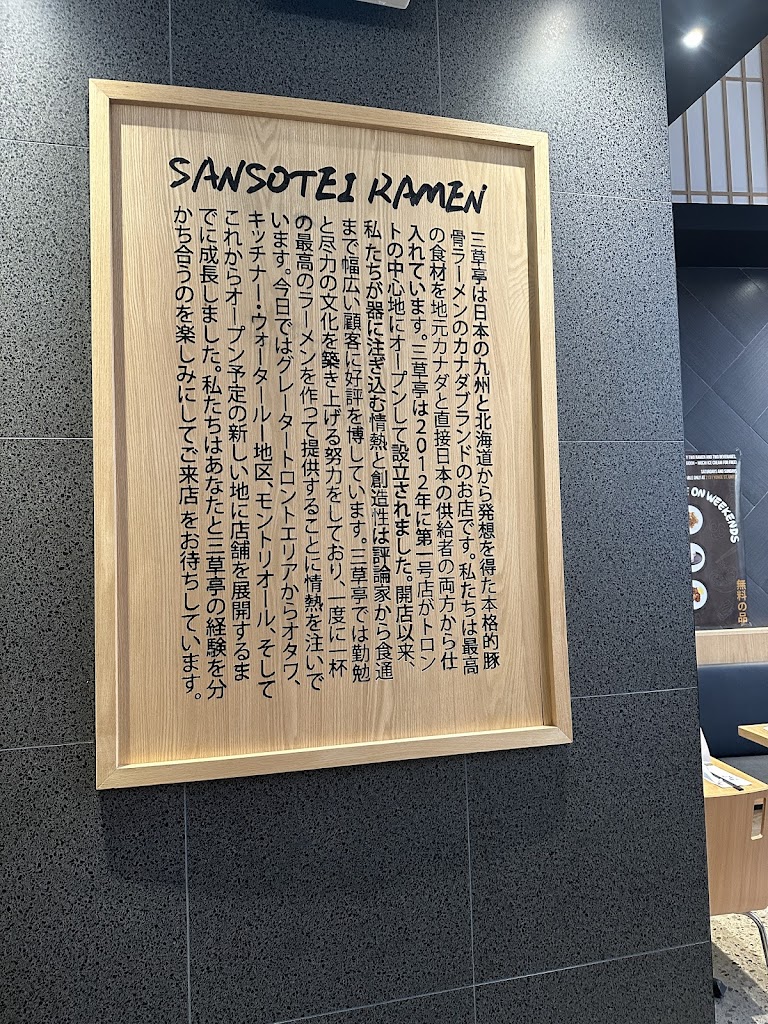 SANSOTEI RAMEN
三草亭は日本の九州と北海道から発想を得た本格的豚
骨ラーメンのカナダブランドのお店です。私たちは最高
の食材を地元カナダと直接日本の供給者の両方から仕
入れています。三草亭は2012年に第一号店がトロン
トの中心地にオープンして設立されました。開店以来、
私たちが器に注ぎ込む情熱と創造性は評論家から食通
まで幅広い顧客に好評を博しています。三草亭では勤勉
と尽力の文化を築き上げる努力をしており、一度に一杯
の最高のラーメンを作って提供することに情熱を注いで
います。今日ではグレータートロントエリアからオタワ、
キッチナー・ウォータールー地区、モントリオール、そして
これからオープン予定の新しい地に店舗を展開するま
でに成長しました。私たちはあなたと三草亭の経験を分
かち合うのを楽しみにしてご来店をお待ちしています。
SATURDAYS AND SUNDAYS
ON WEEKENDS
無料の品